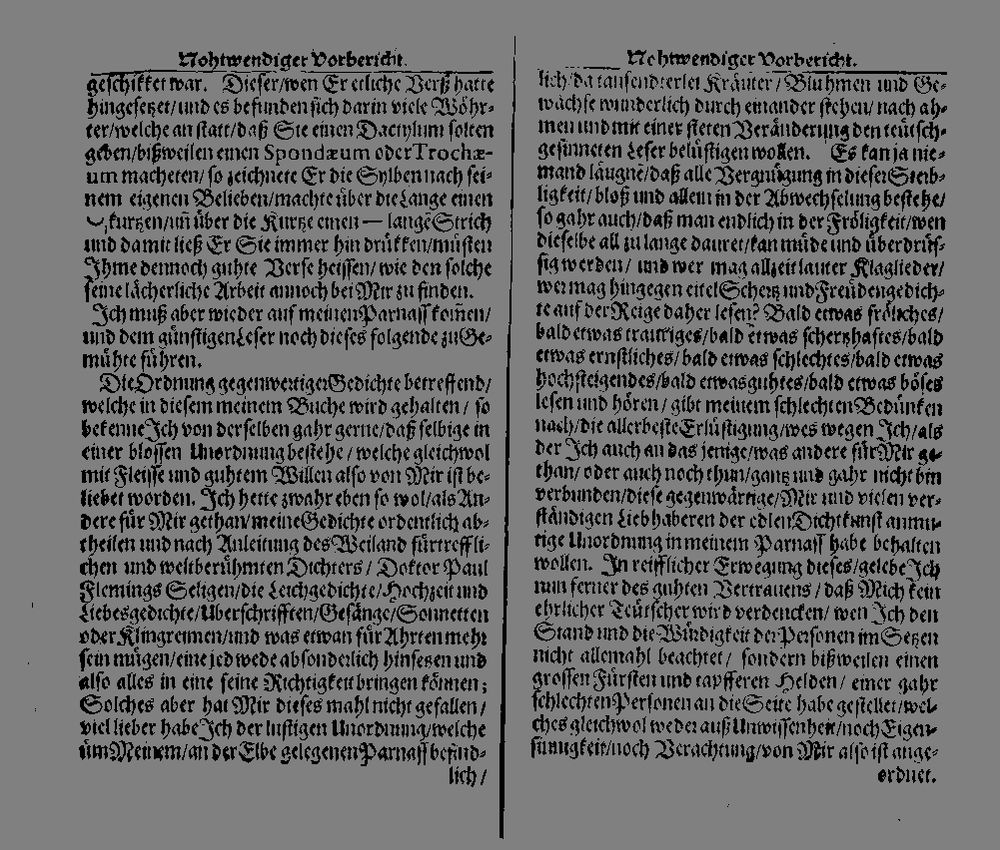 Nohtwendiger Vorbericht.
geschikket war. Dieser/wen Er etliche Verß hatte
hingesetzet/und es befunden sich darin viele Wöhr-
ter/welche an statt/daß Sie einen Dactylum solten
geben/bißweilen einen Spondæum oder Trochæ-
um macheten/so zeichnete Er die Sylben nach sei-
nem eigenen Belieben/machte über die Lange einen
◡,kurtzen/uñ über die Kurtze einen — langẽ Strich
und damit ließ Er Sie immer hin drükken/müsten
Ihme dennoch guhte Verse heissen/wie den solche
seine lächerliche Arbeit annoch bei Mir zu finden.
Ich muß aber wieder auf meinen Parnass kom̃en/
und dem günstigen Leser noch dieses folgende zu Ge-
mühte führen.
Die Ordnung gegenwertiger Gedichte betreffend/
welche in diesem meinem Buche wird gehalten/ so
bekenne Ich von derselben gahr gerne/daß selbige in
einer blossen Unordnung bestehe/welche gleichwol
mit Fleisse und guhtem Willen also von Mir ist be-
liebet worden. Ich hette zwahr eben so wol/als An-
dere für Mir gethan/meine Gedichte ordentlich ab-
theilen und nach Anleitung des Weiland fürtreffli-
chen und weltberühmten Dichters/ Doktor Paul
Flemings Seligen/die Leichgedichte/Hochzeit und
Liebesgedichte/Überschrifften/Gesänge/Sonnetten
oder Klingreimen/und was etwan für Ahrten mehr
sein mügen/eine jedwede absonderlich hinsetzen und
also alles in eine feine Richtigkeit bringen können;
Solches aber hat Mir dieses mahl nicht gefallen/
viel lieber habe Ich der lustigen Unordnung/welche
üm Meinem/an der Elbe gelegenen Parnass befind-
lich/
Nohtwendiger Vorbericht.
lich/da tausenderlei Kräuter/Bluhmen und Ge-
wächse wunderlich durch einander stehen/nach ah-
men und mit einer steten Veränderung den teütsch-
gesinneten Leser belüstigen wollen. Es kan ja nie-
mand läugnẽ/daß alle Vergnügung in dieser Sterb-
ligkeit/bloß und allein in der Abwechselung bestehe/
so gahr auch/daß man endlich in der Fröligkeit/wen
dieselbe all zu lange dauret/kan müde und überdrüs-
sig werden/ und wer mag allzeit lauter Klaglieder/
wer mag hingegen eitel Schertz und Freüdengedich-
te auf der Reige daher lesen? Bald etwas fröliches/
bald etwas trauriges/bald etwas schertzhaftes/bald
etwas ernstliches/bald etwas schlechtes/bald etwas
hochsteigendes/bald etwas guhtes/bald etwas böses
lesen und hören/ gibt meinem schlechten Bedünken
nach/die allerbeste Erlüstigung/wes wegen Ich/als
der Ich auch an das jenige/was andere für Mir ge-
than/oder auch noch thun/gantz und gahr nicht bin
verbunden/diese gegenwärtige/Mir und vielen ver-
ständigen Liebhaberen der edlen Dichtkunst anmu-
tige Unordnung in meinem Parnass habe behalten
wollen. In reifflicher Erwegung dieses/gelebe Ich
nun ferner des guhten Vertrauens/ daß Mich kein
ehrlicher Teütscher wird verdencken/ wen Ich den
Stand und die Würdigkeit der Personen im Setzen
nicht allemahl beachtet/ sondern bißweilen einen
grossen Fürsten und tapfferen Helden/ einer gahr
schlechten Personen an die Seite habe gestellet/wel-
ches gleichwol weder auß Unwissenheit/noch Eigen-
sinnigkeit/noch Verachtung/von Mir also ist ange-
ordnet.